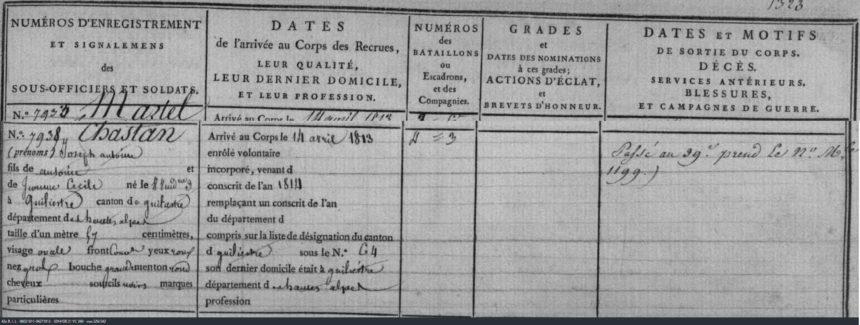 1323
NUMÉROS D'ENREGISTREMENT
ET SIGNALEMENS
des
SOUS-OFFICIERS ET SOLDATS.
DATES
de l'arrivée au Corps des Recrues,
LEUR QUALITÉ,
LEUR DERNIER DOMICILE,
ET LEUR PROFESSION.
NUMÉROS
des
BATAILLONS
ou
Escadrons,
et des
Compagnies.
GRADES
et
DATES DES NOMINATIONS
à ces grades;
ACTIONS D'ÉCLAT,
et
BREVETS D'HONNEUR.
DATES ET MOTIFS
DE SORTIE DU CORPS.
DÉCÈS.
SERVICES ANTÉRIEURS.
BLESSURES,
ET CAMPAGNES DE GUERRE.
N.o 7933 Martel
Arrivé au Corps le 14 avril 1813
N.o 7938 Chastan
(prénoms) Joseph antoine
fils de antoine et
de Jeanne Cecile né le 8
à Guillestre canton de guillestre
département des hautes alpes
taille d'un mètre 57 centimètres,
visage ovale front yeux roux
nez gros bouche grande menton rond
cheveux sourcils noirs marques
particulières
Arrivé au Corps le 14 avril 1813
enrôlé volontaire
incorporé, venant d
conscrit de l'an 1814
remplaçant un conscrit de l'an
du département d
compris sur la liste de désignation du canton
d guillestre sous le N.o 64
son dernier domicile était à guillestre
département des hautes alpes
profession
4 = 3
Passé au 39e prend le No Mle
1199.)